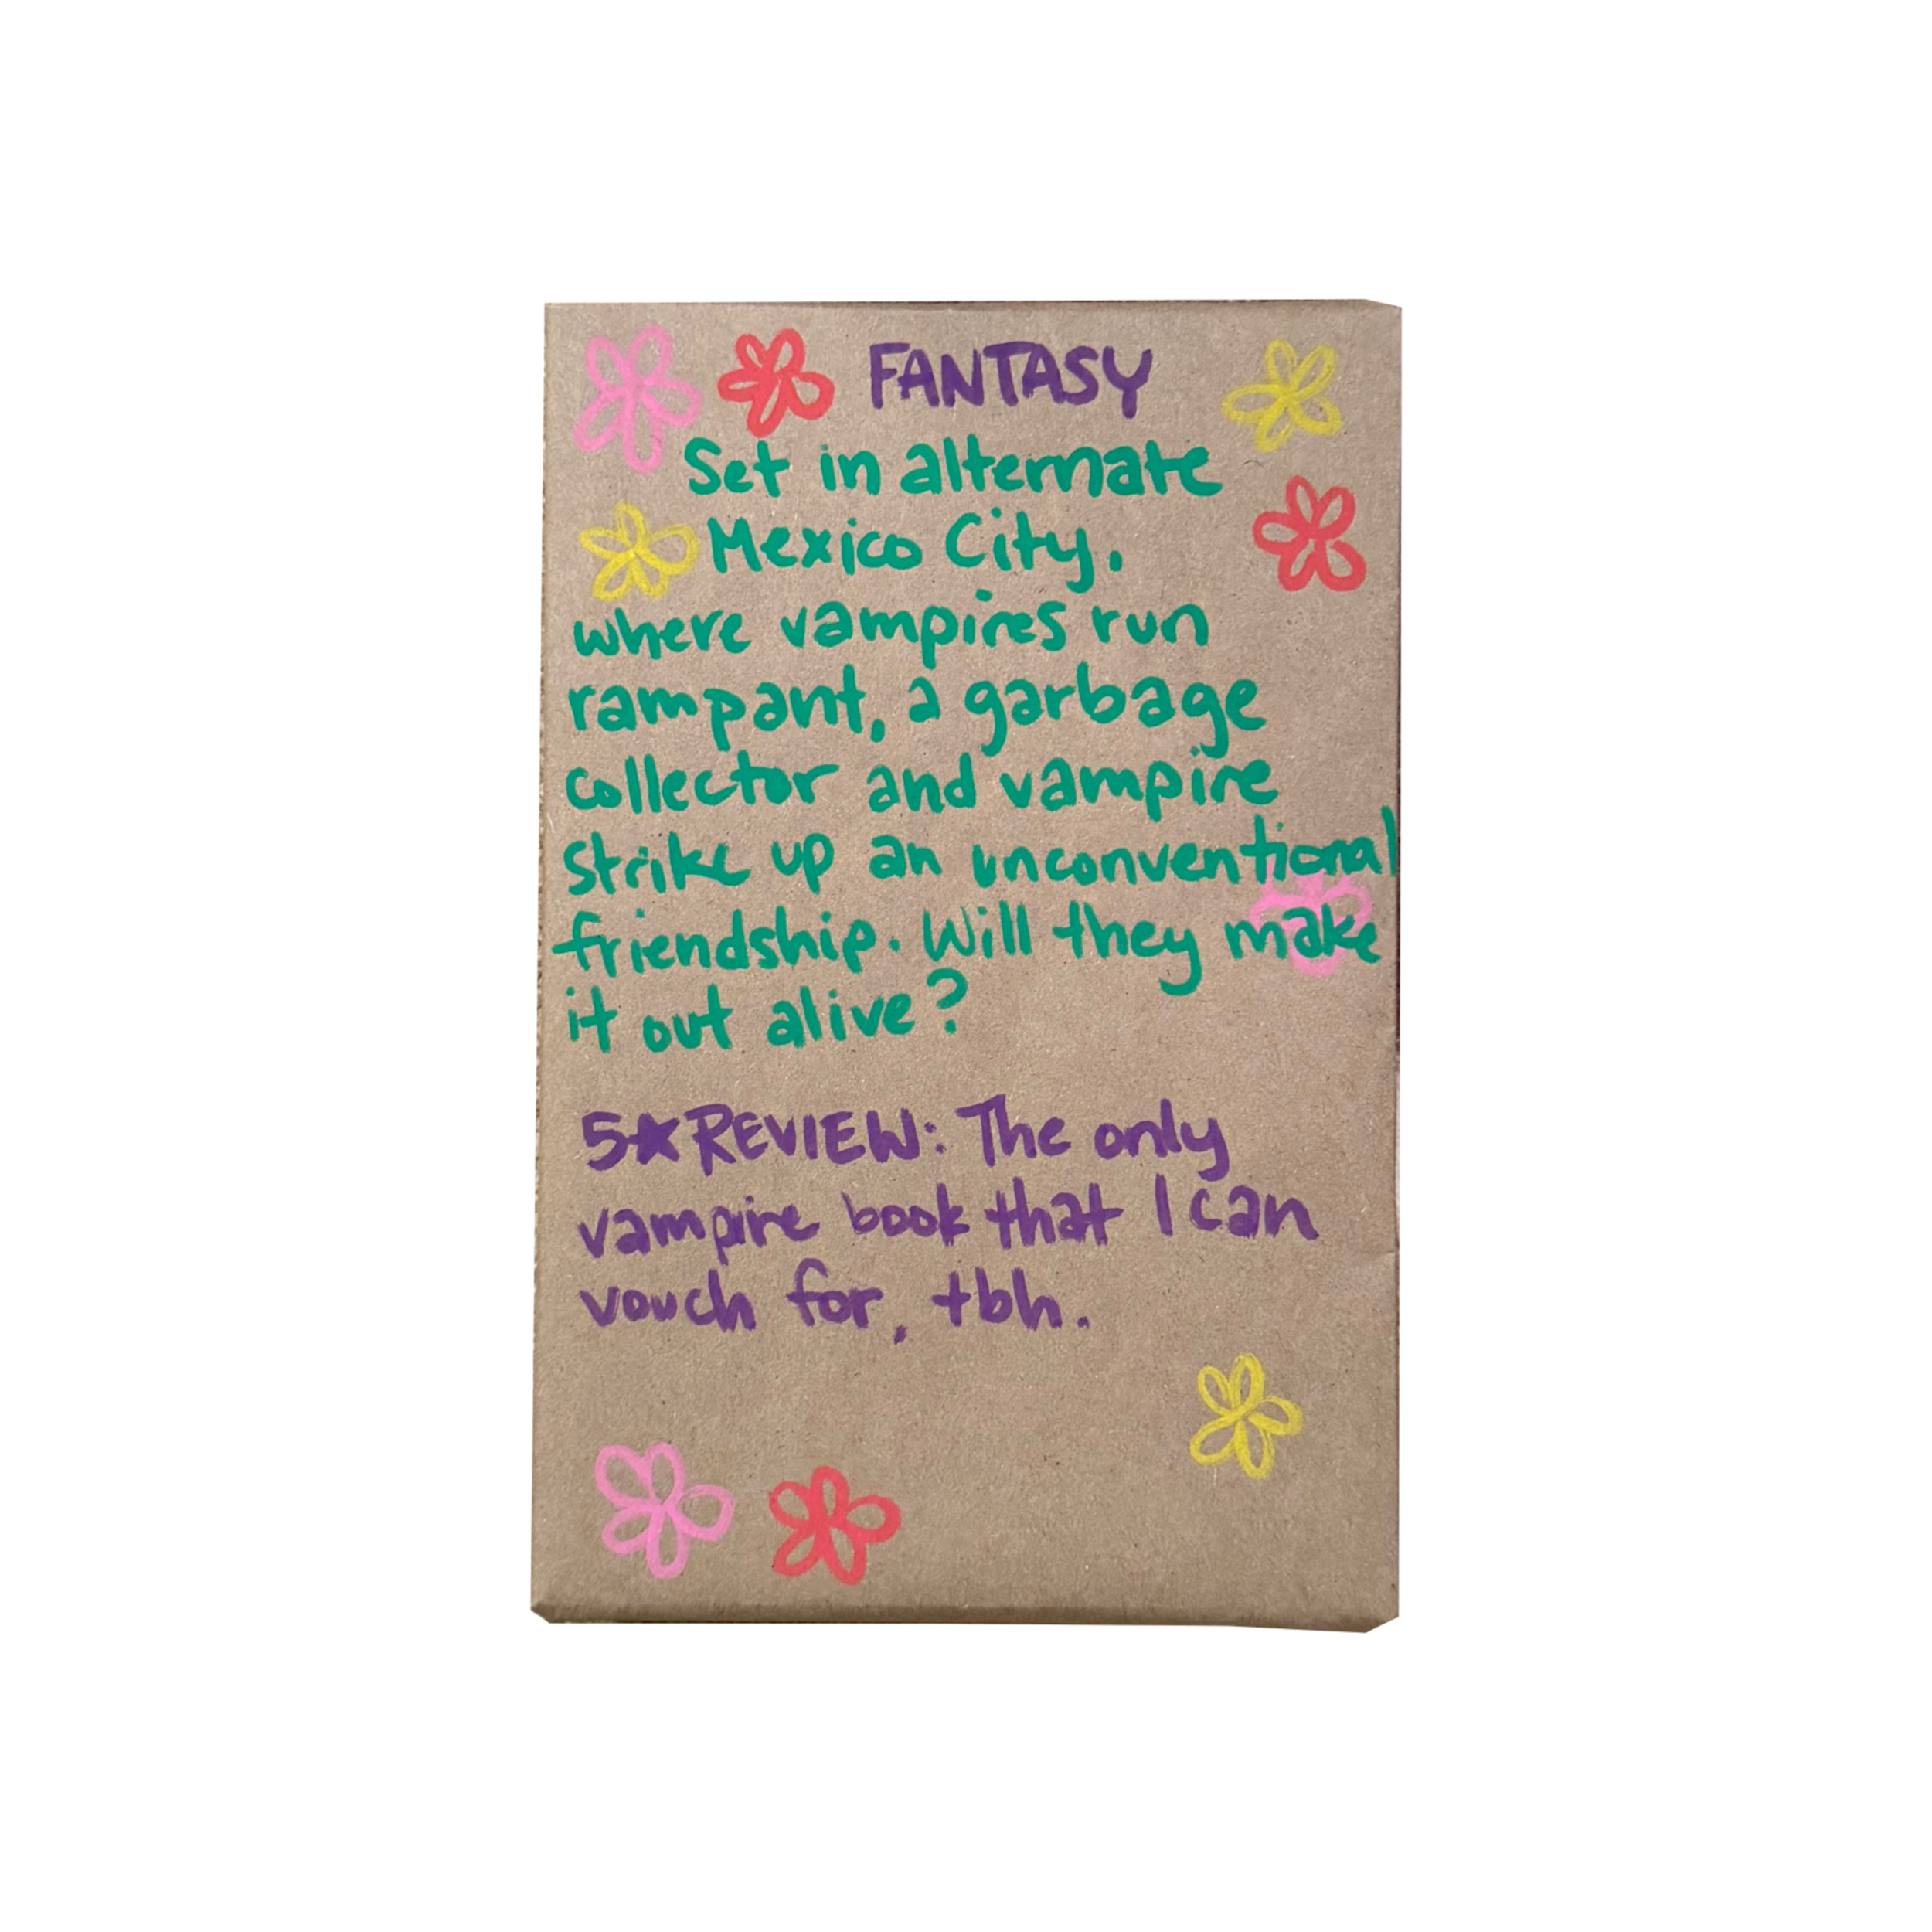 FANTASY
Set in alternate
Mexico City,
where vampires run
rampant, a garbage
collector and vampire
strike up an unconventional
friendship. Will they make
it out alive?
5★REVIEW: The only
vampire book that I can
vouch for, tbh.